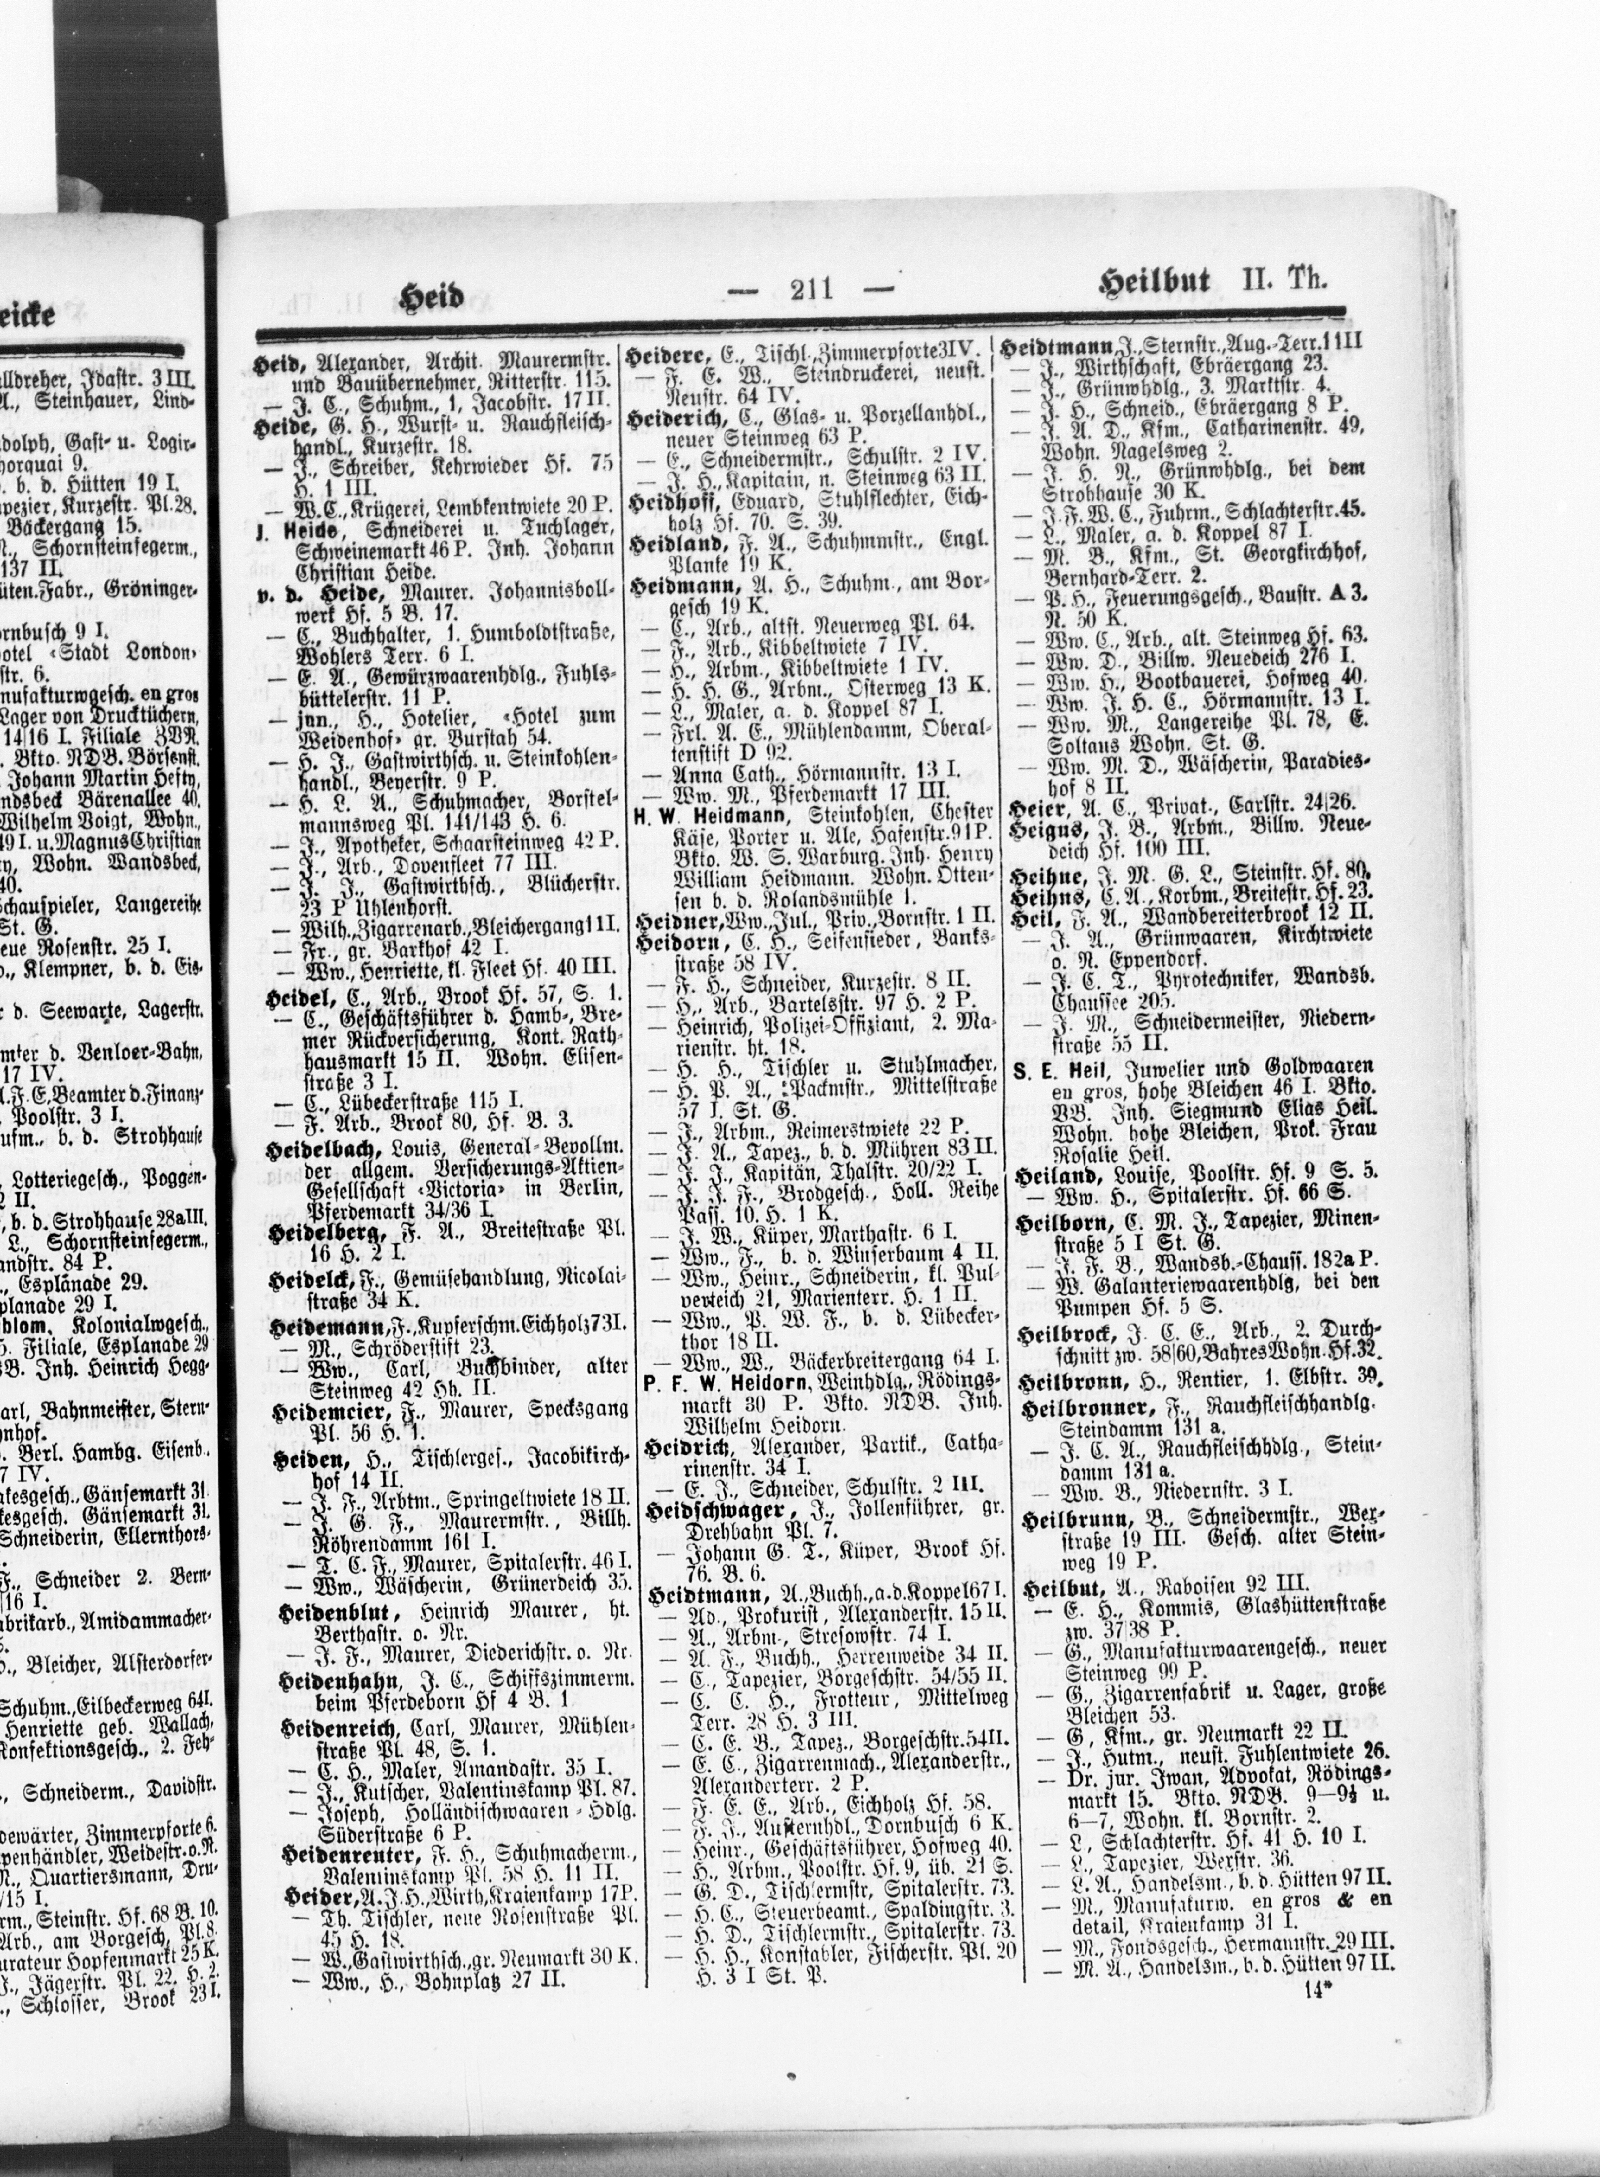 eicke
alldreher, Idastr. 3 III.
A., Steinhauer, Lind-
dolph, Gast- u. Logir-
horquai 9.
b. d. Hütten 19 I.
pezier, Kurzestr. Pl.28.
Bäckergang 15.
Schornsteinfegerm.,
137 II.
üten.Fabr., Gröninger-
ornbusch 9 I.
otel «Stadt London»
str. 6.
nufakturwgesch. en gros
Lager von Drucktüchern,
14/16 I. Filiale ZVN.
Bkto. NDB. Börsenst.
Johann Martin Hefty,
ndsbeck Bärenallee 40,
Wilhelm Voigt, Wohn.,
49 I. u.Magnus Christian
ty, Wohn. Wandsbeck,
40.
Schauspieler, Langereihe
St. G.
eue Rosenstr. 25 I.
Klempner, b. d. Eis-
r d. Seewarte, Lagerstr.
mter d. Venloer-Bahn,
17 IV.
F.E,Beamter d.Finanz-
Poolstr. 3 I.
ufm., b. d. Strohhause
Lotteriegesch., Poggen-
2 II.
b. d. Strohhause 28a III.
L., Schornsteinfegerm.,
andstr. 84 P.
Esplanade 29.
planade 29 I.
blom, Kolonialwgesch.,
Filiale, Esplanade 29
B. Inh. Heinrich Hegg-
arl, Bahnmeister, Stern-
nhof.
Berl. Hambg. Eisenb.
7 IV.
kesgesch., Gänsemarkt 31
kesgesch. Gänsemarkt 31.
Schneiderin, Ellernthors-
F., Schneider 2. Bern-
16 I.
abrikarb., Amidammacher-
Bleicher, Alsterdorfer-
Schuhm., Eilbeckerweg 64I.
Henriette geb. Wallach,
Konfektionsgesch., 2. Feh-
Schneiderm., Davidstr.
dewärter, Zimmerpforte 6.
penhändler, Weidestr.o.N.
Quartiersmann, Dru-
/15 I.
rm., Steinstr. Hf. 68 B. 10.
Arb., am Borgesch, Pl.8.
urateur Hopfenmarkt 25 K.
J., Jägerstr. Pl. 22. H. 2.
Schlosser, Brook 23 I.
Heid — 211 — Heilbut II. Th.
Heid, Alexander, Archit. Maurermstr.
und Bauübernehmer, Ritterstr. 115.
— J. C., Schuhm., 1, Jacobstr. 17 II.
Heide, G. H., Wurst- u. Rauchfleisch-
handl., Kurzestr. 18.
— J., Schreiber, Kehrwieder Hf. 75
H. 1 III.
— W.C., Krügerei, Lembkentwiete 20 P.
J. Heide, Schneiderei u. Tuchlager,
Schweinemarkt 46 P. Inh. Johann
Christian Heide.
v. d. Heide, Maurer. Johannisboll-
werk Hf. 5 B. 17.
— C., Buchhalter, 1. Humboldtstraße,
Wohlers Terr. 6 I.
— E. A., Gewürzwaarenhdlg., Fuhls-
büttelerstr. 11 P.
— jun., H., Hotelier, «Hotel zum
Weidenhof» gr. Burstah 54.
— H. J., Gastwirthsch. u. Steinkohlen-
handl., Beyerstr. 9 P.
— H. L. A., Schuhmacher, Borstel-
mannsweg Pl. 141/143 H. 6.
— J., Apotheker, Schaarsteinweg 42 P.
— J., Arb., Dovenfleet 77 III.
— J. J., Gastwirthsch., Blücherstr.
23 P Uhlenhorst.
— Wilh., Zigarrenarb., Bleichergang 11 I.
— Fr., gr. Barkhof 42 I.
— Ww., Henriette, kl. Fleet Hf. 40 III.
Heidel, C., Arb., Brook Hf. 57, S. 1.
— C., Geschäftsführer d. Hamb-, Bre-
mer Rückversicherung, Kont. Rath-
hausmarkt 15 II. Wohn. Elisen-
straße 3 I.
— C., Lübeckerstraße 115 I.
— F. Arb., Brook 80, Hf. B. 3.
Heidelbach, Louis, General-Bevollm.
der allgem. Versicherungs-Aktien-
Gesellschaft «Victoria» in Berlin,
Pferdemarkt 34/36 I.
Heidelberg, F. A., Breitestraße Pl.
16 H. 2 I.
Heidelck, F., Gemüsehandlung, Nicolai-
straße 34 K.
Heidemann, F., Kupferschm. Eichholz 73 I.
— M., Schröderstift 23.
— Ww., Carl, Buchbinder, alter
Steinweg 42 Hh. II.
Heidemeier, F., Maurer, Specksgang
Pl. 56 H. 1.
Heiden, H., Tischlerges., Jacobikirch-
hof 14 II.
— J. F., Arbtm., Springeltwiete 18 II.
— J. G. F., Maurermstr., Billh.
Röhrendamm 161 I.
— T. C. F., Maurer, Spitalerstr. 46 I.
— Ww., Wäscherin, Grünerdeich 35.
Heidenblut, Heinrich Maurer, ht.
Berthastr. o. Nr.
— J. F., Maurer, Diederichstr. o. Nr.
Heidenhahn, J. C., Schiffszimmerm.
beim Pferdeborn Hf 4 B. 1
Heidenreich, Carl, Maurer, Mühlen-
straße Pl. 48, S. 1.
— C. H., Maler, Amandastr. 35 I.
— J., Kutscher, Valentinskamp Pl. 87.
— Joseph, Holländischwaaren-Hdlg.
Süderstraße 6 P.
Heidenreuter, F. H., Schuhmacherm.,
Valentinskamp Pl. 58 H. 11 II.
Heider, A. J. H., Wirth, Kraienkamp 17 P.
— Th. Tischler, neue Rosenstraße Pl.
45 H. 18.
— W., Gastwirthsch., gr. Neumarkt 30 K.
— Ww., H., Bohnplatz 27 II.
Heidere, E., Tischl., Zimmerpforte 3 IV.
— F. E. W., Steindruckerei, neust.
Neustr. 64 IV.
Heiderich, C., Glas- u. Porzellanhdl.,
neuer Steinweg 63 P.
— E., Schneidermstr., Schulstr. 2 IV.
— J. H., Kapitain, n. Steinweg 63 II.
Heidhoff, Eduard, Stuhlflechter, Eich-
holz Hf. 70. S. 39.
Heidland, F. A., Schuhmmstr., Engl.
Plante 19 K.
Heidmann, A. H., Schuhm., am Bor-
gesch 19 K.
— C., Arb., altst. Neuerweg Pl. 64.
— F., Arb., Kibbeltwiete 7 IV.
— H., Arbm., Kibbeltwiete 1 IV.
— H. H. G., Arbm., Osterweg 13 K.
— L., Maler, a. d. Koppel 87 I.
— Frl. A. E., Mühlendamm, Oberal-
tenstift D 92.
— Anna Cath., Hörmannstr. 13 I.
— Ww. M., Pferdemarkt 17 III.
H. W. Heidmann, Steinkohlen, Chester
Käse, Porter u. Ale, Hafenstr. 91 P.
Bkto. W. S. Warburg. Inh. Henry
William Heidmann. Wohn. Otten-
sen b. d. Rolandsmühle 1.
Heidner, Ww., Jul., Priv., Bornstr. 1 II.
Heidorn, C. H., Seifensieder, Banks-
straße 58 IV.
— F. H., Schneider, Kurzestr. 8 II.
— H., Arb., Bartelsstr. 97 H. 2 P.
— Heinrich, Polizei-Offiziant, 2. Ma-
rienstr. ht. 18.
— H. H., Tischler u. Stuhlmacher,
— H. P. A., Packmstr., Mittelstraße
57 I. St. G.
— J., Arbm., Reimerstwiete 22 P.
— J. A., Tapez., b. d. Mühren 83 II.
— J. J., Kapitän, Thalstr. 20/22 I.
— J. J. F., Brodgesch., Holl. Reihe
Pass. 10. H. 1 K.
— J. W., Küper, Marthastr. 6 I.
— Ww., F., b. d. Winserbaum 4 II.
— Ww., Heinr., Schneiderin, kl. Pul-
verteich 21, Marienterr. H. 1 II.
— Ww., P. W. F., b. d. Lübecker-
thor 18 II.
— Ww., W., Bäckerbreitergang 64 I.
P. F. W. Heidorn, Weinhdlg., Rödings-
markt 30 P. Bkto. NDB. Inh.
Wilhelm Heidorn.
Heidrich, Alexander, Partik., Catha-
rinenstr. 34 I.
— E. J., Schneider, Schulstr. 2 III.
Heidschwager, J., Jollenführer, gr.
Drehbahn Pl. 7.
— Johann G. T., Küper, Brook Hf.
76. B. 6.
Heidtmann, A., Buchh., a.d.Koppel 67 I.
— Ad., Prokurist, Alexanderstr. 15 II.
— A., Arbm., Stresowstr. 74 I.
— A. F., Buchh., Herrenweide 34 II.
— C., Tapezier, Borgeschstr. 54/55 II.
— C. C. H., Frotteur, Mittelweg
Terr. 28 H. 3 III.
— C. E. B., Tapez., Borgeschstr. 54 II.
— E. C., Zigarrenmach., Alexanderstr.,
Alexanderterr. 2 P.
— F. E. E., Arb., Eichholz Hf. 58.
— F. J., Austernhdl., Dornbusch 6 K.
— Heinr., Geschäftsführer, Hofweg 40.
— H., Arbm., Poolstr. Hf. 9, üb. 21 S.
— G. D., Tischlermstr, Spitalerstr. 73.
— H. C., Steuerbeamt., Spaldingstr. 3.
— H. D., Tischlermstr., Spitalerstr. 73.
— H. H., Konstabler, Fischerstr. Pl. 20
H. 3 I St. P.
Heidtmann, J., Sternstr., Aug.-Terr. 11 II
— J., Wirthschaft, Ebräergang 23.
— J., Grünwhdlg., 3. Marktstr. 4.
— J. H., Schneid., Ebräergang 8 P.
— J. A. D., Kfm., Catharinenstr. 49,
Wohn. Nagelsweg 2.
— J. H. N., Grünwhdlg., bei dem
Strohhause 30 K.
— J. F. W. C., Fuhrm., Schlachterstr. 45.
— L., Maler, a. d. Koppel 87 I.
— M. B., Kfm., St. Georgkirchhof,
Bernhard-Terr. 2.
— P. H., Feuerungsgesch., Baustr. A 3.
N. 50 K.
— Ww. C., Arb., alt. Steinweg Hf. 63.
— Ww. D., Billw. Neuedeich 276 I.
— Ww. H., Bootbauerei, Hofweg 40.
— Ww. J. H. C., Hörmannstr. 13 I.
— Ww. M., Langereihe Pl. 78, E.
Soltaus Wohn. St. G.
— Ww. M. D., Wäscherin, Paradies-
hof 8 II.
Heier, A. C., Privat., Carlstr. 24/26.
Heigns, J. B., Arbm., Billw. Neue-
deich Hf. 100 III.
Heihne, J. M. G. L., Steinstr. Hf. 80.
Heihns, C. A., Korbm., Breitestr. Hf. 23.
Heil, F. A., Wandbereiterbrook 12 II.
— J. A., Grünwaaren, Kirchtwiete
o. N. Eppendorf.
— J. C. T., Pyrotechniker, Wandsb.
Chaussee 205.
— J. M., Schneidermeister, Niedern-
straße 55 II.
S. E. Heil, Juwelier und Goldwaaren
en gros, hohe Bleichen 46 I. Bkto.
VB. Inh. Siegmund Elias Heil.
Wohn. hohe Bleichen, Prok. Frau
Rosalie Heil.
Heiland, Louise, Poolstr. Hf. 9 S. 5.
— Ww. H., Spitalerstr. Hf. 66 S.
Heilborn, C. M. J., Tapezier, Minen-
straße 5 I St. G.
— J. F. B., Wandsb.-Chauss. 182a P.
— W. Galanteriewaarenhdlg, bei den
Pumpen Hf. 5 S.
Heilbrock, J. C. E., Arb., 2. Durch-
schnitt zw. 58/60, Bahres Wohn. Hf. 32.
Heilbronn, H., Rentier, 1. Elbstr. 39.
Heilbronner, F., Rauchfleischhandlg.
Steindamm 131 a.
— J. C. A., Rauchfleischhdlg., Stein-
damm 131 a.
— Ww. B., Niedernstr. 3 I.
Heilbrunn, B., Schneidermstr., Wex-
straße 19 III. Gesch. alter Stein-
weg 19 P.
Heilbut, A., Raboisen 92 III.
— E. H., Kommis, Glashüttenstraße
zw. 37/38 P.
— G., Manufakturwaarengesch., neuer
Steinweg 99 P.
— G., Zigarrenfabrik u. Lager, große
Bleichen 53.
— G, Kfm., gr. Neumarkt 22 II.
— J., Hutm., neust. Fuhlentwiete 26.
— Dr. jur. Iwan, Advokat, Rödings-
markt 15. Bkto. NDB. 9—9½ u.
6—7, Wohn. kl. Bornstr. 2.
— L, Schlachterstr. Hf. 41 H. 10 I.
— L., Tapezier, Wexstr. 36.
— L. A., Handelsm., b. d. Hütten 97 II.
— M., Manufakturw. en gros & en
detail, Kraienkamp 31 I.
— M., Fondsgesch., Hermannstr. 29 III.
— M. A., Handelsm., b. d. Hütten 97 II.
14*